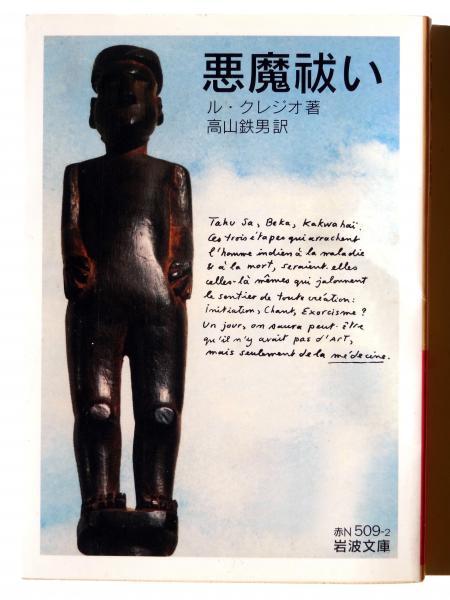 悪魔祓い
ル・クレジオ著
高山鉄男訳
Tahu Sa, Beka, Kakwahaï.
Ces trois étapes qui arrachent
l'homme indien à la maladie
& à la mort, seraient-elles
celles-là mêmes qui jalonnent
le sentier de toute création:
Initiation, Chant, Exorcisme?
Un jour, on saura peut-être
qu'il n'y avait pas d'art,
mais seulement de la médecine.
赤N 509-2
岩波文庫